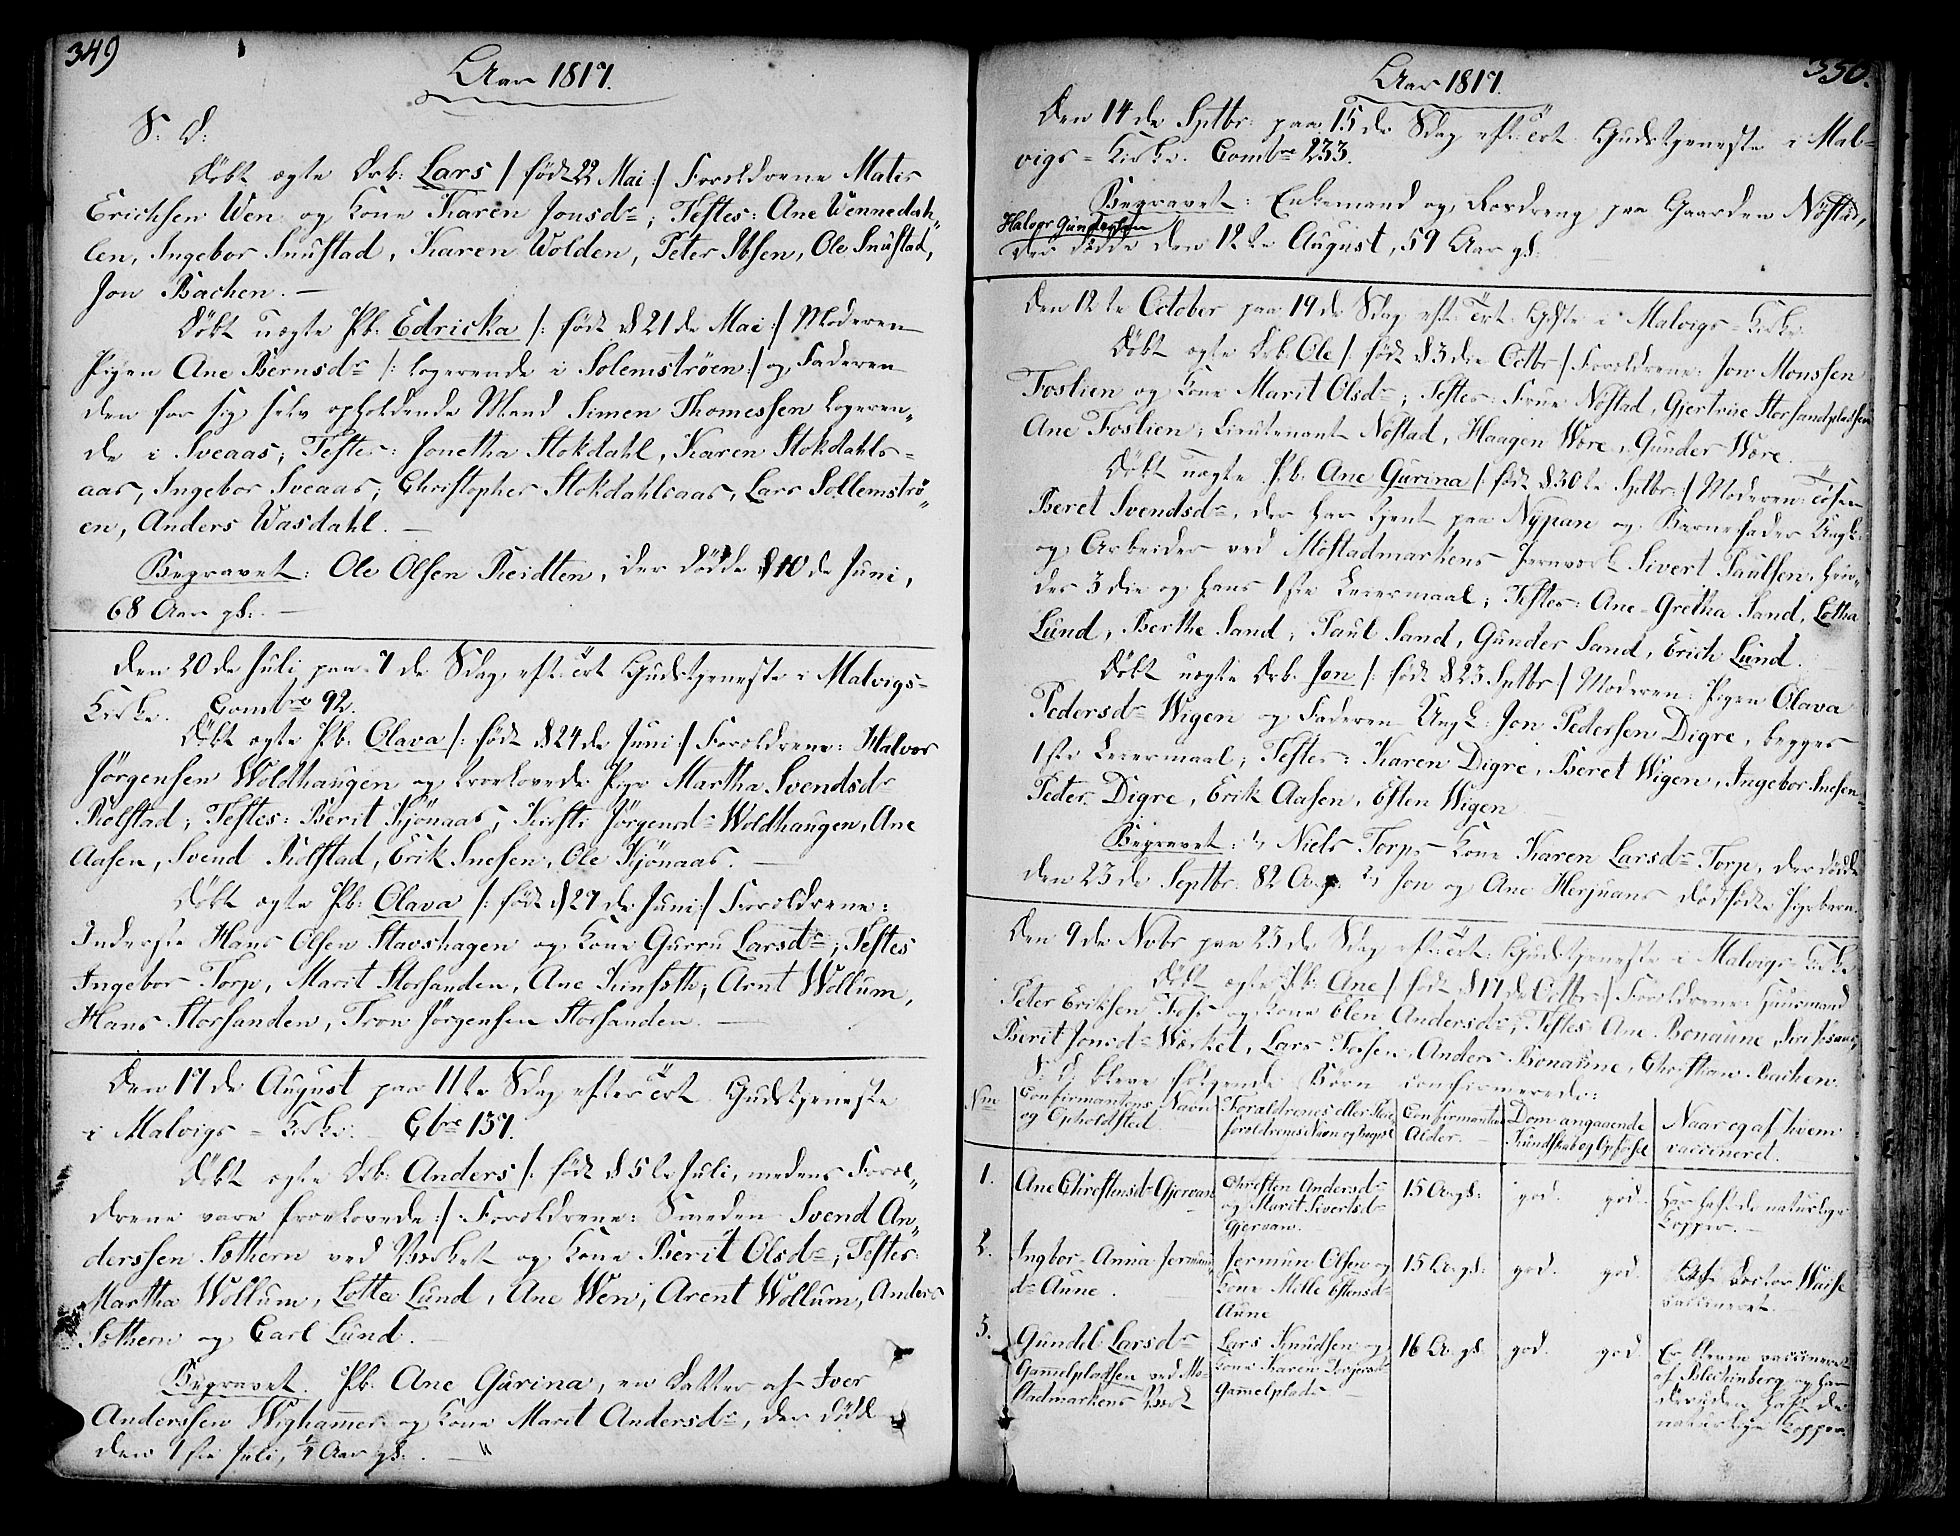 349
Aar 1817.
S: D:
Döbt ægte Drb: Lars /: föd 22 Mai :/ Forældrene Matis
Erichsen Wen og Kone Karen Jonsdr; Testes: Ane Wennedah„
len, Ingebor Snustad, Karen Wolden, Peter Ibsen, Ole Snustad,
Jon Bachen. —
Döbt uægte Pb: Edricka /: föd d 21de Mai :/ Moderen
Pigen Ane Bernsdr /: logerende i Solemströen :/ og Faderen
den for sig selv opholdende Mand Simen Thomessen logeren„
de i Sveaas; Testes: Jonetha Stokdahl, Karen Stokdahls=
aas, Ingebor Sveaas; Christopher Stokdahlsaas, Lars Sollemströ„
en, Anders Wasdahl. —
Begravet: Ole Olsen Reidten, der döde d 10de Juni,
68 Aar gl: —
Den 20de Juli paa 7de Sdag eft: Trt: Gudstjeneste i Malvigs=
Kirke. Combre 92.
Döbt ægte Pb: Olava /: föd d 24de Juni :/ Forældrene: Halvor
Jörgensen Woldhaugen og trovlovede Pige Martha Svendsdr
Rolstad; Testes: Berit Kjönaas, Kirsti Jörgensdr Woldhaugen, Ane
Aasen, Svend Rolstad, Erik Snesen, Ole Kjönaas. —
Döbt ægte Pb: Olava /: föd d 27de Juni :/ Forældrene:
Inderste Hans Olsen Stavshagen og Kone Gurru Larsdr; Testes
Ingebor Torp, Marit Storsanden, Ane; Arnt Wollum,
Hans Storsanden, Tron Jörgensen Storsanden. —
Den 17de August paa 11te Sdag efter Trt: Gudstjeneste
i Malvigs=Kirke. — Cbre 137.
Döbt ægte Drb: Anders /: föd d 5te Juli, medens Foræl„
drene vare trovlovede :/ Forældrene: Smeden Svend An„
derssen Sothern ved Værket og Kone Berit Olsdr; Testes:
Martha Wollum, Lotta Lund, Ane Wen; Arent Wollum, Anders
Sothern og Carl Lund. —
Begravet. Pb: Ane Gurina, en Datter af Iver
Anderssen Wighammer og Kone Marit Andersdr, der döde
den 1ste Juli, Aar gl: —
350.
Aar 1817.
Den 14de Sptbr: paa 15de Sdag eft: Trt: Gudstjeneste i Mal=
vigs=Kirke. Combre 233.
Begravet: Enkemand og Fordreng paa Gaarden Nöstad,
Halvor Gundersen
der döde den 12te August, 59 Aar gl:
Den 12te October paa 19de Sdag eft: Trt: Gdste i Malvigs=Kirke
Döbt ægte Drb: Ole /: föd d 3die Octbr :/ Forældrene: Jon Monssen
Foslien og Kone Marit Olsdr; Testes: Frue Nöstad, Gjertrue Storsandpladsen
Ane Foslien; Lieutenant Nöstad, Haagen Wore, Gunder Wore.
Döbt uægte Pb: Ane Gurina /: föd d 30te Sptbr: :/ Moderen: Tösen
Beret Svendsdr, der har tjent paa Nypan og Barnefader Ungk:
og Arbeider ved Mostadmarkens Jernværk Sivert Paulsen, hen„
des 3die og hans 1ste Leiermaal; Testes: Ane=Gretha Sand, Lotha
Lund, Berthe Sand; Paul Sand, Gunder Sand, Erich Lund.
Döbt uægte Drb: Jon /: föd d 23 Sptbr :/ Moderen: Pigen Olava
Pedersdr Wigen og Faderen Ungk: Jon Pedersen Digre, begges
1ste Leiermaal; Testes: Karen Digre, Beret Wigen, Ingebor Snesen,
Peder Digre, Erik Aasen, Esten Wigen
Begravet: 1) Niels Torps Kone Karen Larsdr Torp, der döde
den 23de Septbr: 82 A. g. 2) Jon og Ane Herjuans dödfödte Pigebarn.
Den 9de Nobr paa 23de Sdag eft: Trt: Gudstjeneste i Malvigs=Kirke
Döbt ægte Pb: Ane /: föd d 17de Octbr :/ Forældrene: Huusmand
Peter Eriksen Fos og Kone Elen Andersdr; Testes: Ane Bonaune,
Berit Jonsdr Værket, Lars Fossen, Anders Bonaune, Christian Bachen.
S: D: bleve fölgende Börn confirmerede:
Nm
Confirmantens Navn
og Opholdsted.
Forældrenes eller Pleie
forældrenes Navn og Bopæl
Confirmantens
Alder.
Dom angaaende
Kundskab og Opförsel
Naar og af hvem
vaccineret.
1.
Ane Christensdr Gjervan
Christen Andersdr
og Marit Sivertsdr
Gjervan.
15 A. gl:
god. god.
har haft de naturlige
Kopper. —
2.
Ingbor=Anna Jermun
dr Aune.
Jermun Olsen og
Kone Mille Estensdr
Aune
15 A. gl:
god. god.
Af Doctor Weise
vaccineret.
3.
Gundel Larsdr
Gammelpladsen ved Mo=
stadmarkens Værk
Lars Knudsen og
Kone Karen
Gammelplads
16 A. gl:
god. god.
Er bleven vaccineret
af Blechinberg og har
desuden haft de
naturlige Kopper.